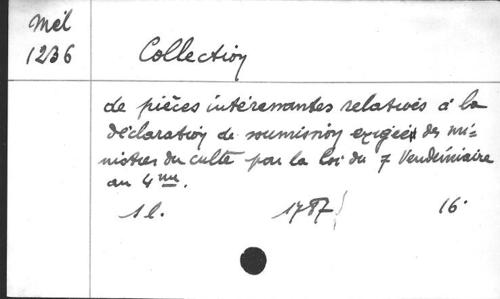 Mél
1236
Collection
de pièces intéressantes relatives à la
déclaration de soumission exigée des mi=
nistres du culte par la loi du 7 Vendémiaire
an 4me.
1 l. 1787 16.